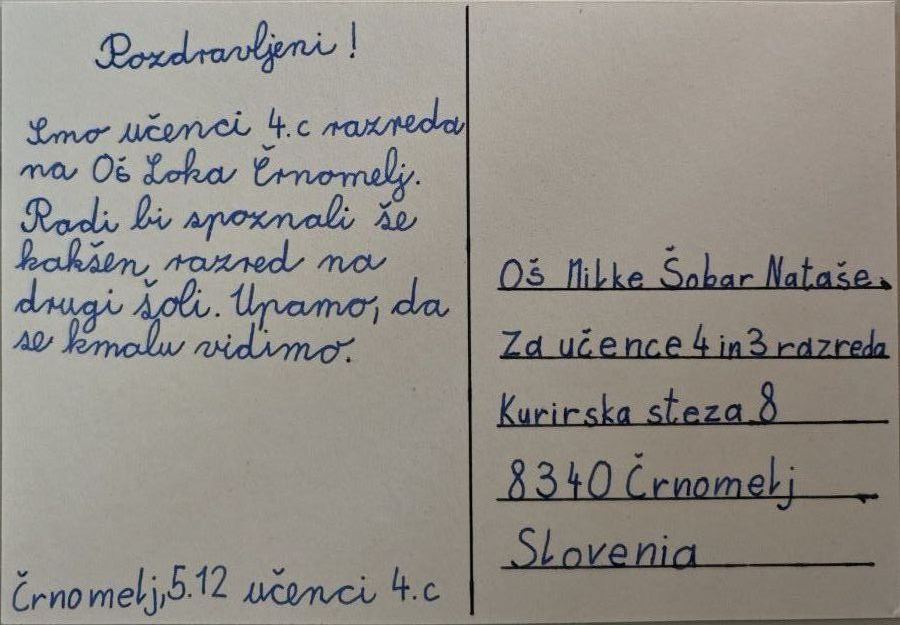 Pozdravljeni!
Smo učenci 4.c razreda
na Oš Loka Črnomelj.
Radi bi spoznali še
kakšen razred na
drugi šoli. Upamo, da
se kmalu vidimo.
Črnomelj, 5.12 učenci 4.c
Oš Milke Šobar Nataše.
Za učence 4 in 3 razreda
Kurirska steza 8
8340 Črnomelj
Slovenia